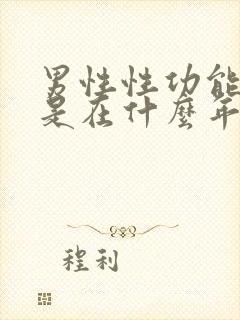 男性性功能
是在什麼年
程利